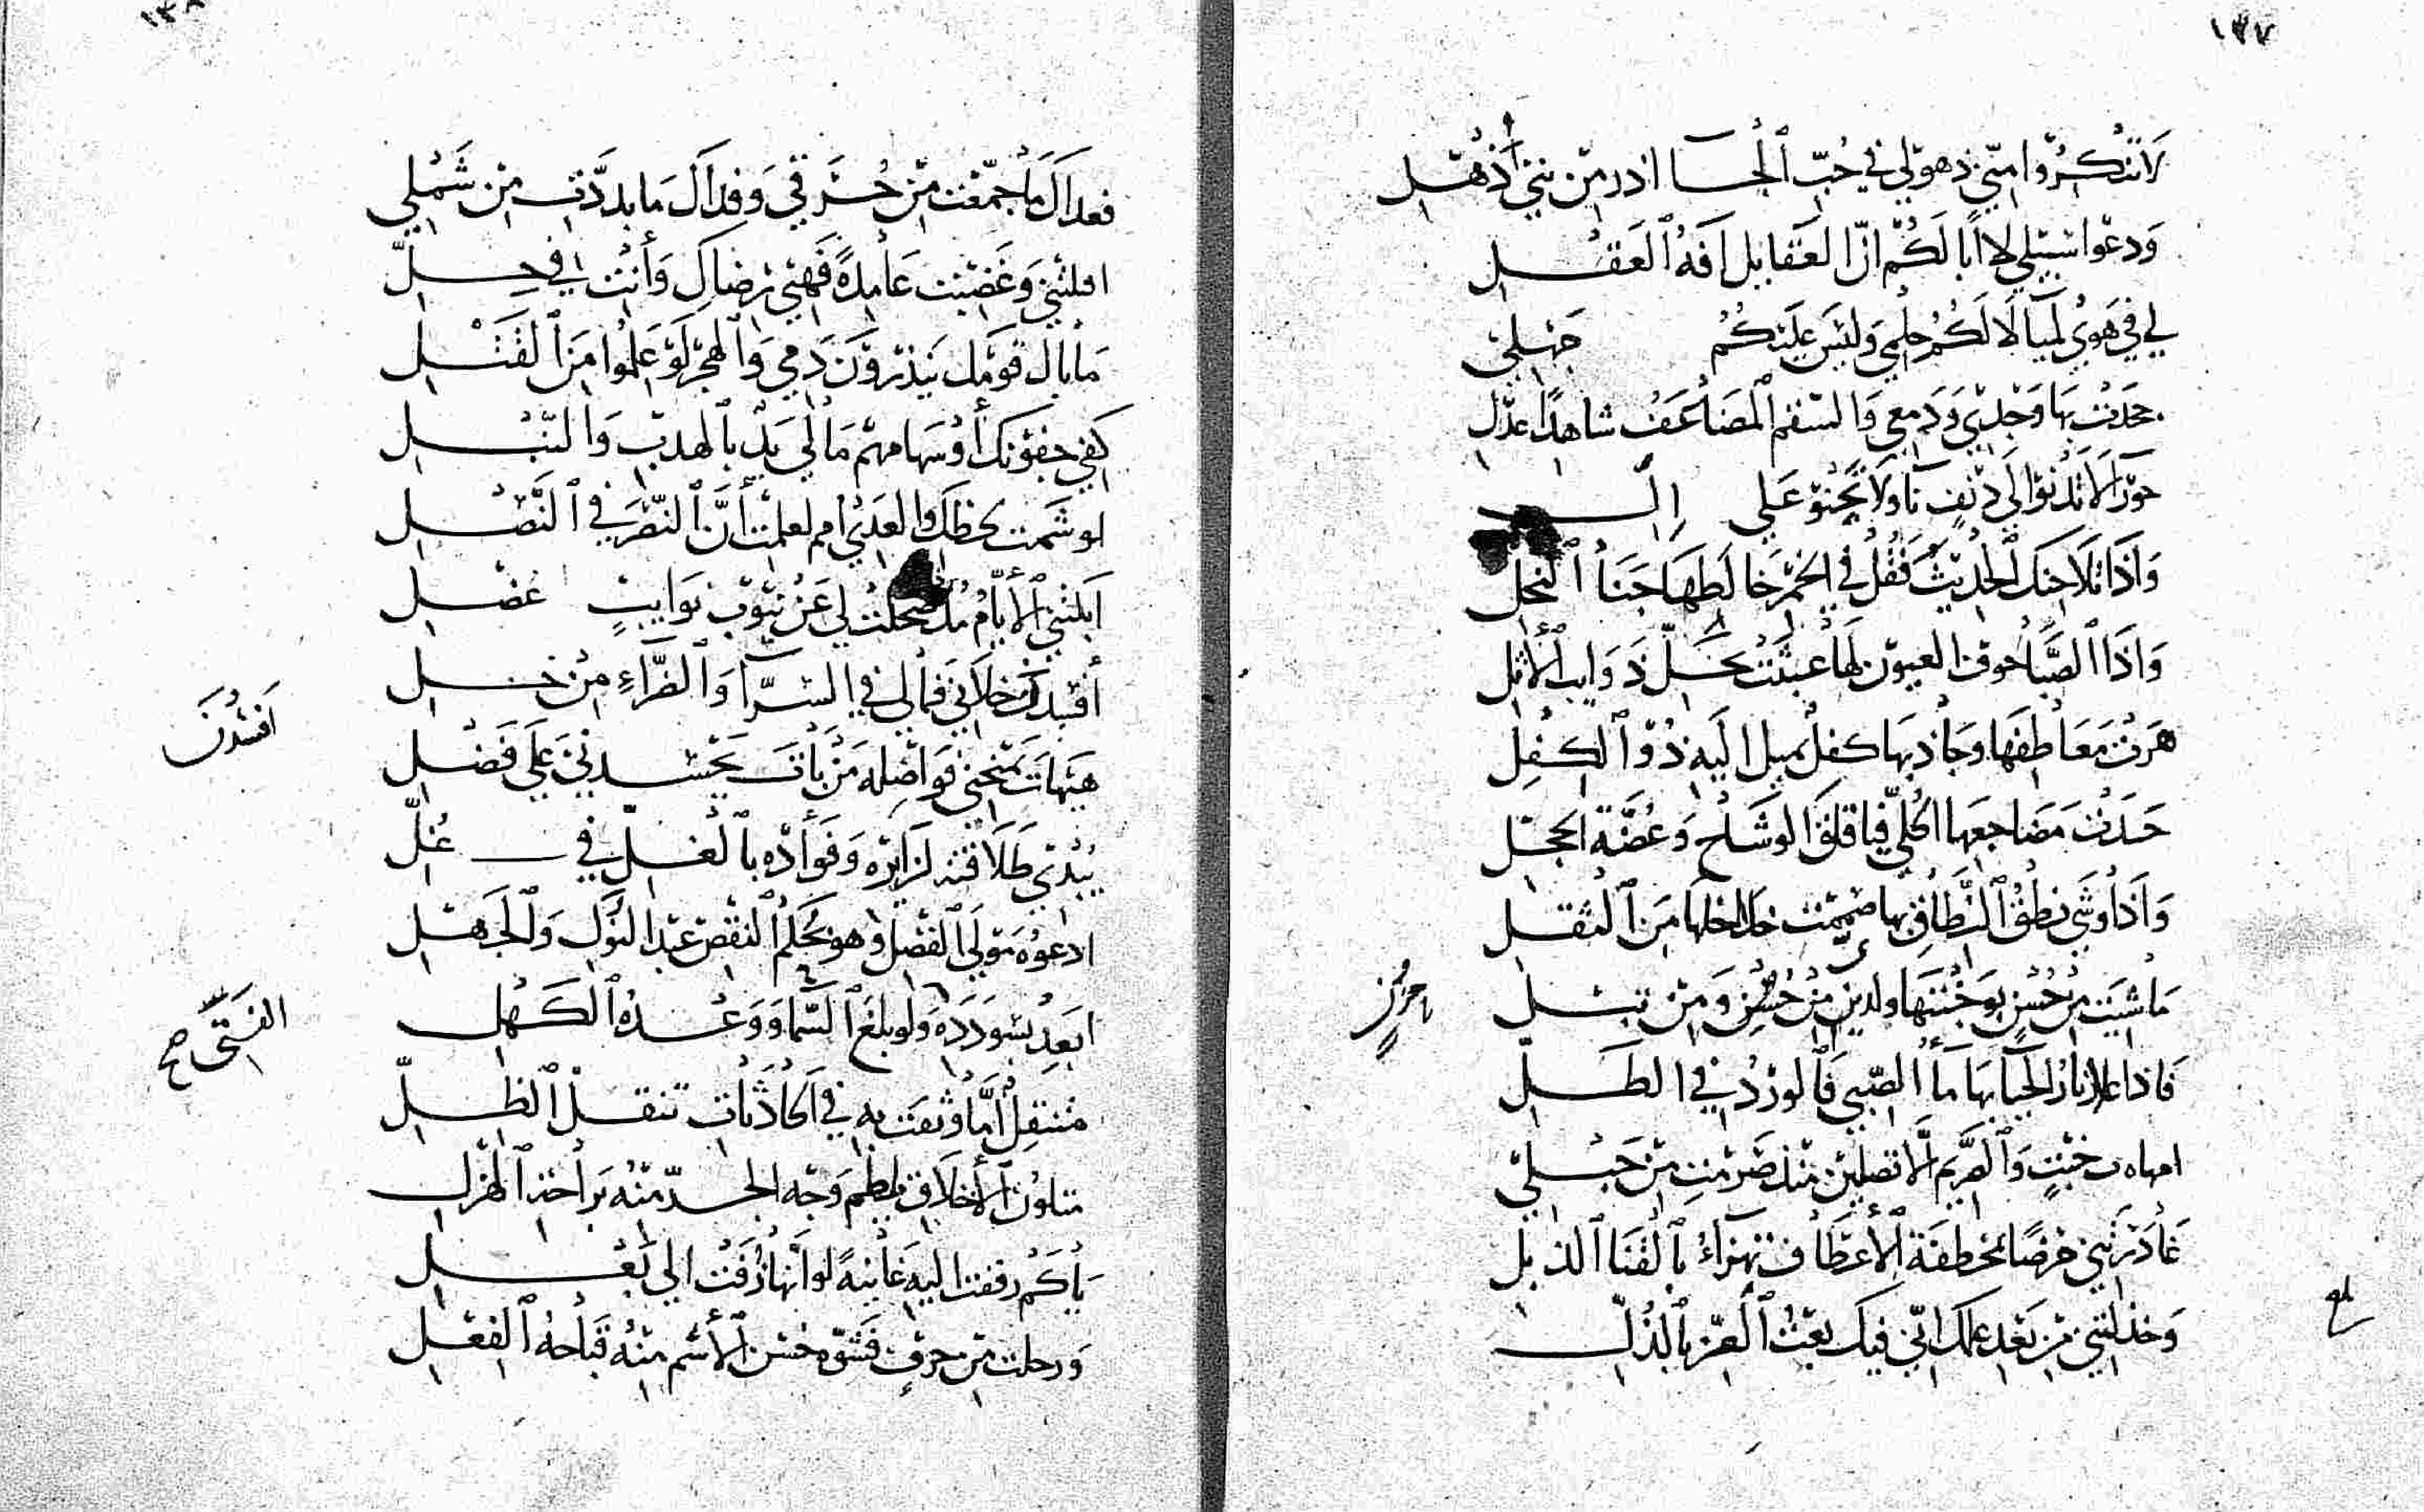 ١٣٧
لا تنكروا مني ذهولي في حب الحسان من بني ذهل
ودعوا سبيلي لا ابا لكم ان العقايل افة العقل
لي في هوى لميا لا لكم حلمي وليس عليكم جهلي
جحدت بها وجدي ودمعي والسقم المضاعف شاهدا عدل
حورا لا تدنو الي دنف نا ولا تحنو علي
واذا تلاحنك الحديث فقل في الخمر خالطها جنا النحل
واذا الصبا العيون لها عبثت بكل ذوايب الاثل
هزت معاطفها وجاذبها كفل يميل اليه ذو الكفل
حسدت مضاجعها الحلي فيا قلق الوشاح وغصة الحجل
واذا وشى نطق النطاق بها صمتت خلاخلها من الثقل
ما شيت من حسن بوجنتها من حسن ومن بسل
فاذا علا نار الحيا بها ما الصبى فالورد في الطل
امهاة خبت والصريم الا تصلين منك صرمت من حبلي
غادرتني غرضا لمخطفة الاعطاف تهزاء بالقنا الذبل
وخذلتني من بعد علمك اني فيك بعت العز بالذل
احزان
بلغ
١٣٨
فعداك ما جمعت من حرقي وفداك ما بددت من شملي
اقلتني وغضبت عامدة فهبي رضاك وانت في حل
ما بال قومك ينذرون دمي والهجر لو علموا من القتل
كفي جفونك او سهامهم ما لي يد بالهدب والنبل
لو شمت لحظك والعدى امم لعلمت ان النصر في النصل
ابلتني الايام مذ ضحكت لي عن نيوب نوايب عضل
افسدن خلاني فما لي في السرا والضراء من خل
هيهات تمنحني فواضله من بات يحسدني على فضل
يبدي طلاقته لزايره وفواده بالغل في غل
ادعوه مولى الفضل وهو بحكم النقص عبد النوك والجهل
ابعد بسودده ولو بلغ السما ووعده الكهل
متنقل اما وثقت به في الحادثات تنقل الظل
متلون الاخلاق يلطم وجه الجد منه براحة الهزل
يا كم زففت اليه غانية لو انها زفت الى بعل
ورحلت من حرق فشوه حسن الاسم منه قباحة الفعل
افسدن
الفتى صح